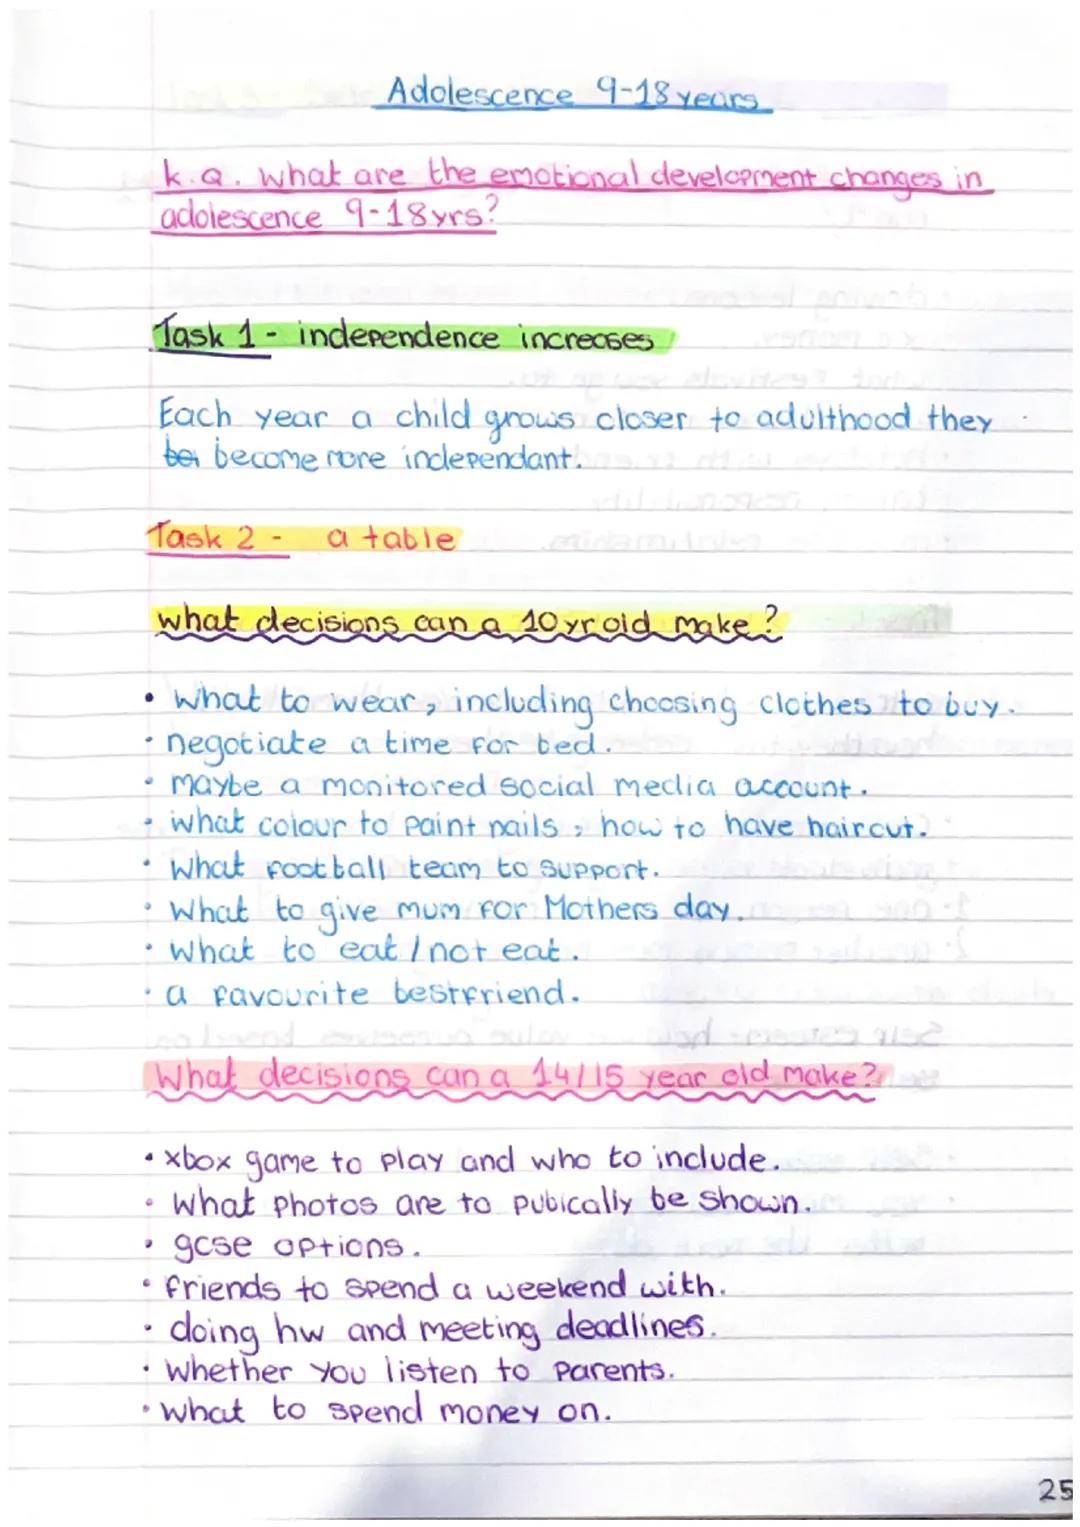 Adolescence 9-18 years
k.Q. what are the emotional development changes in
adolescence 9-18yrs?
Task 1 - independence increases
Each year a child grows closer to adulthood they
be become more independant.
Task 2 - a table
what decisions can a 10yr old make?
• what to wear, including choosing clothes to buy.
• negotiate a time for bed.
• maybe a monitored social media account.
• what colour to paint nails, how to have haircut.
• What football team to support.
• What to give mum for Mothers day.
• What to eat / not eat.
• a favourite bestfriend.
What decisions can a 14/15 year old make?
• xbox game to play and who to include.
• What photos are to pubically be shown.
• gcse options.
• friends to spend a weekend with.
• doing hw and meeting deadlines.
• whether you listen to parents.
• what to spend money on.
25